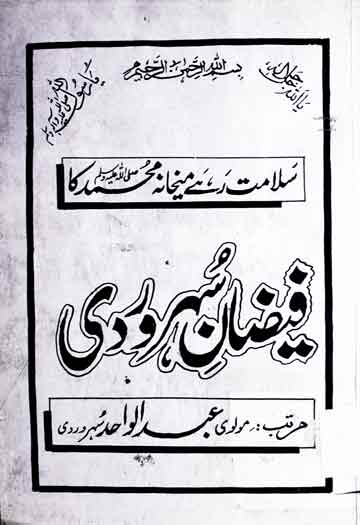 بسم اللہ الرحمن الرحیم
یا اللہ جل جلالہ
یا رسول اللہ صلی اللہ علیہ وسلم
سلامت رہے میخانہ محمد صلی اللہ علیہ وسلم کا
فیضانِ سُہروردی
مرتب: مولوی عبدالواحد سُہروردی